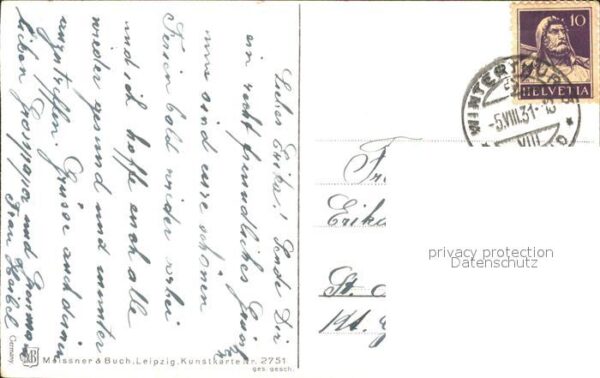 Liebes Erika! Sende Dir
ein recht freundliches Grüssli
nun sind eure schönen
Ferien bald wieder vorbei
und ich hoffe euch alle
wieder gesund und munter
anzutreffen. Grüsse auch deinen
lieben Grosspapa und Grossmama
Frau Keibel
Germany
Meissner & Buch, Leipzig. Kunstkarte Nr. 2751
ges. gesch.
10
HELVETIA
WINTERTHUR
-5.VIII.31-
VIII
Fr
Erika
St.
Kt.
privacy protection
Datenschutz